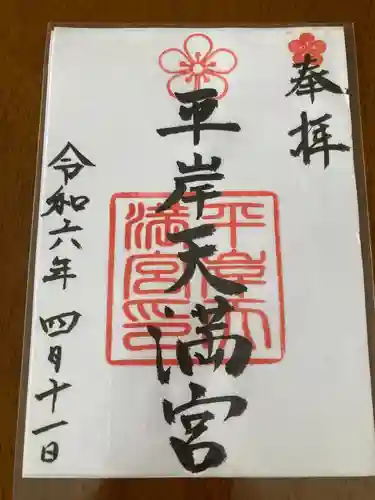 奉拝
平岸天満宮
平岸天
満宮印
令和六年 四月十一日